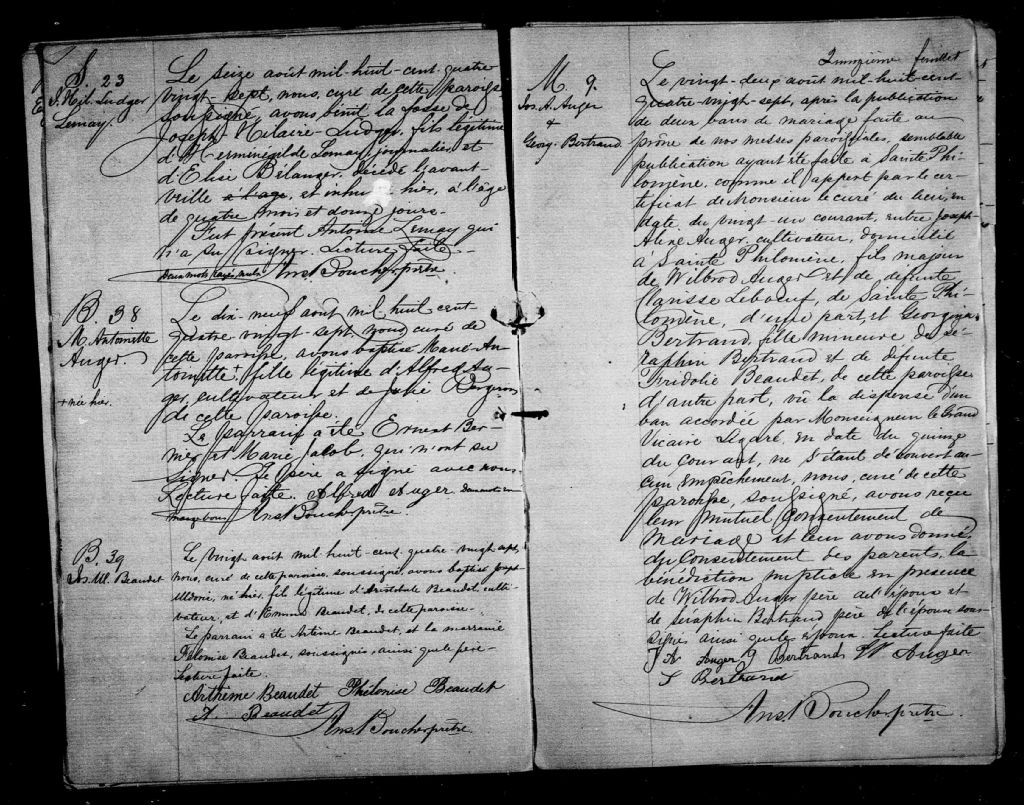 S. 23
J. Hil. Ludger
Lemay.
Le seize août mil-huit-cent-quatre
vingt-sept, nous, curé de cette paroisse
soussigné, avons béni la fosse de
Joseph-Hilaire-Ludger, fils légitime
d'Herménégilde Lemay, journalier, et
d'Elise Bélanger, décédé
ville à l'age, et inhumé hier, à l'âge
de quatre mois et douze jours.
Fut présent Antoine Lemay qui
n'a su signer. Lecture faite.
deux mots rayés nuls Ans Boucher ptre.
B. 38
M. Antoinette
Auger.
+ née hier.
Le dix-neuf août mil huit cent
quatre vingt-sept, nous curé de
cette paroisse, avons baptisé Marie-An-
toinette+, fille légitime d'Alfred Au-
ger, cultivateur, et de Julie Bergeron
de cette paroisse.
Le parrain a été Ernest Ber-
nier et Marie Jacob, qui n'ont su
signer. Le père a signé avec nous.
Lecture faite. Alfred Auger
Ans Boucher ptre.
B. 39
Jos. Ul. Beaudet
Le vingt août mil huit-cent-quatre-vingt-sept,
nous, curé de cette paroisse, soussigné, avons baptisé Joseph
né hier, fils légitime d'Aristobule Beaudet, culti-
vateur, et d'Emma Beaudet, de cette paroisse.
Le parrain a été Artème Beaudet, et la marraine
Philomise Beaudet, soussignés, ainsi que le père.
Lecture faite.
Arthème Beaudet Phélonise Beaudet
A. Beaudet
Ans Boucher ptre
Quinzième feuillet
M. 9.
Jos. A. Auger
&
Georg. Bertrand
Le vingt-deux août mil huit-cent
quatre-vingt-sept, après la publication
de deux bans de mariage faite au
prône de nos messes paroissiales, semblable
publication ayant été faite à Sainte Phi-
lomène, comme il appert par le cer-
tificat de Monsieur le curé du lieu, en
date du vingt-un courant, entre Joseph-
Auger, cultivateur, domicilié
à Sainte Philomène, fils majeur
de Wilbrod Auger et de défunte
Clarisse Leboeuf, de Sainte Phi-
lomène, d'une part, et Georgina
Bertrand, fille mineure de Sé-
raphin Bertrand et de défunte
Beaudet, de cette paroisse
d'autre part, vu la dispense d'un
ban accordée par Monseigneur le Grand
Vicaire Légaré, en date du quinze
du courant, ne s'étant découvert au-
cun empêchement, nous, curé de cette
paroisse, soussigné, avons reçu
leur mutuel consentement de
mariage et leur avons donné,
du consentement des parents, la
bénédiction nuptiale en présence
de Wilbrod Auger père de l'époux et
de Séraphin Bertrand père de l'épouse sous-
signé, ainsi que les époux. Lecture faite
J A Auger G Bertrand W Auger
S Bertrand
Ans Boucher ptre.